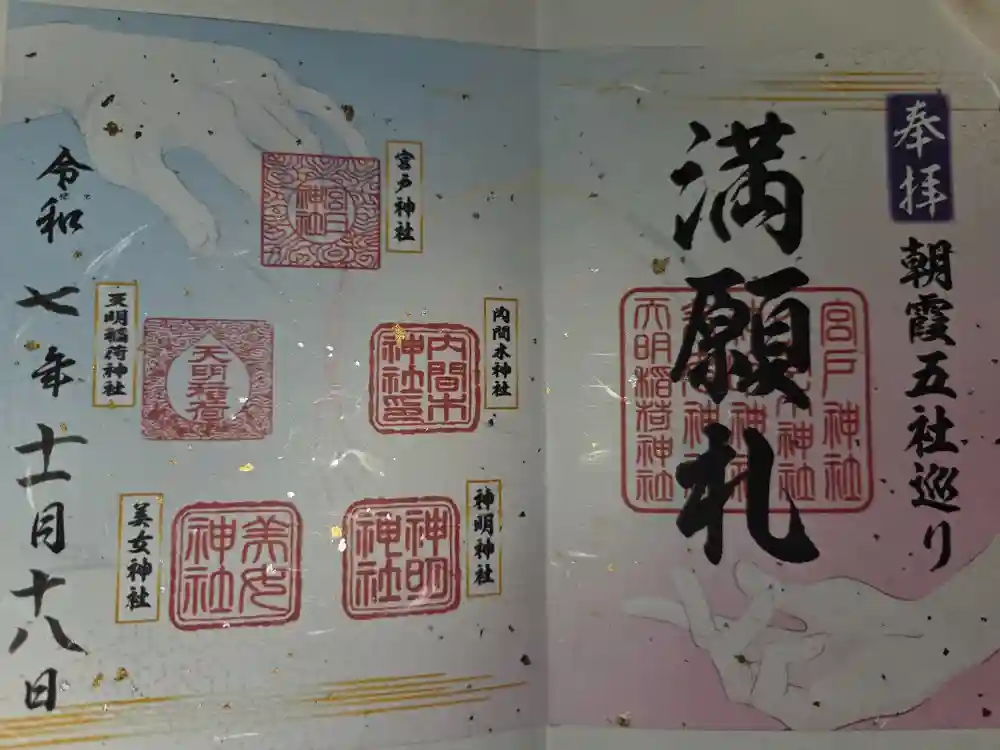 奉拝
朝霞五社巡り
満願札
宮戸神社
天明稲荷神社
宮戸神社
宮戸神社
内間木神社
内間木神社印
神明神社
神明神社
天明稲荷神社
天明稲荷
美女神社
美女神社
令和七年十一月十八日